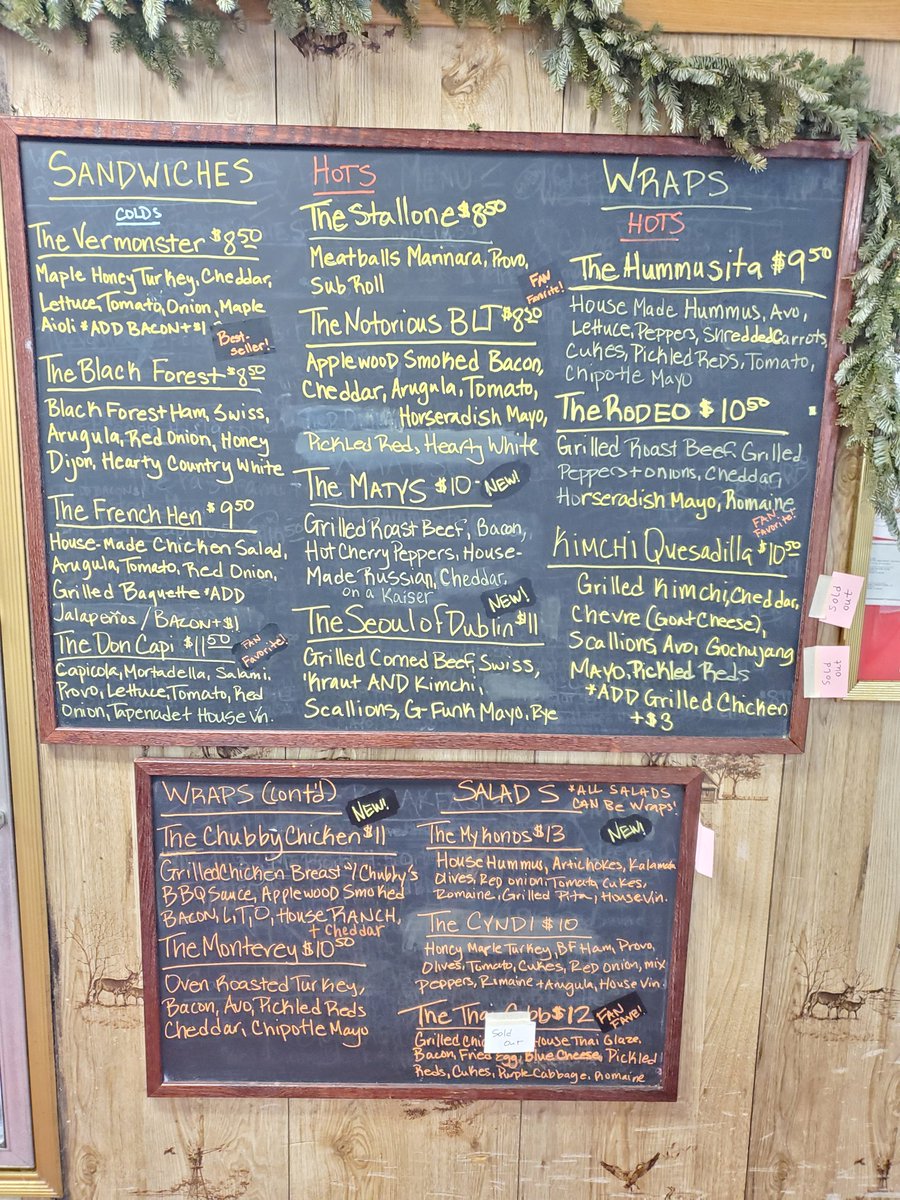 SANDWICHES
COLDS
The Vermonster $8.50
Maple Honey Turkey, Cheddar,
Lettuce, Tomato, Onion, Maple
Aioli *ADD BACON+$1
Best-
seller!
The Black Forest $8.50
Black Forest Ham, Swiss,
Arugula, Red Onion, Honey
Dijon, Hearty Country White
The French Hen $9.50
House-Made Chicken Salad,
Arugula, Tomato, Red Onion,
Grilled Baguette *ADD
Jalapeños / BACON+$1
The Don Capi $11.50
FAN
Favorite!
Capicola, Mortadella, Salami,
Provo, Lettuce, Tomato, Red
Onion, Tapenade+ House Vin.
HOTS
The Stallone $8.50
Meatballs Marinara, Provo,
Sub Roll
FAN
Favorite!
The Notorious BLT $8.50
Applewood Smoked Bacon,
Cheddar, Arugula, Tomato,
Horseradish Mayo,
Pickled Red, Hearty White
The MATYS $10-
NEW!
Grilled Roast Beef, Bacon,
Hot Cherry Peppers, House-
Made Russian, Cheddar,
on a Kaiser
NEW!
The Seoul of Dublin $11
Grilled Corned Beef, Swiss,
'Kraut AND Kimchi,
Scallions, G-Funk Mayo, Rye
WRAPS
HOTS
The Hummusita $9.50
House Made Hummus, Avo,
Lettuce, Peppers, Shredded Carrots,
Cukes, Pickled Reds, Tomato,
Chipotle Mayo
The RODEO $10.50
Grilled Roast Beef, Grilled
Peppers + onions, Cheddar,
Horseradish Mayo, Romaine
FAN
Favorite!
KIMCHI Quesadilla $10.50
Grilled Kimchi, Cheddar,
Chevre (Goat Cheese),
Scallions, Avo, Gochujang
MAYO, Pickled Reds
*ADD Grilled Chicken
+$3
Sold
out
Sold
out
WRAPS (Cont'd)
NEW!
The Chubby Chicken $11
Grilled Chicken Breast w/ Chubby's
BBQ Sauce, Applewood Smoked
BACON, L,T,O, House RANCH,
+ Cheddar
The Monterey $10.50
Oven Roasted Turkey,
Bacon, Avo, Pickled Reds
Cheddar, Chipotle Mayo
SALADS
*ALL SALADS
CAN Be Wraps!
The Mykonos $13
NEW!
House Hummus, Artichokes, Kalamata
Olives, Red onion, Tomato, Cukes,
Romaine, Grilled Pita, House Vin.
The CYNDI $10
Honey Maple Turkey, BF Ham, Provo,
Olives, Tomato, Cukes, Red Onion, mix
Peppers, Rimaine + Arugula, House Vin.
The Thai Cobb $12
FAN
FAVE!
Sold
out
Grilled House Thai Glaze,
Bacon, Fried Egg, Blue Cheese, Pickled
Reds, Cukes, Purple Cabbage, Romaine